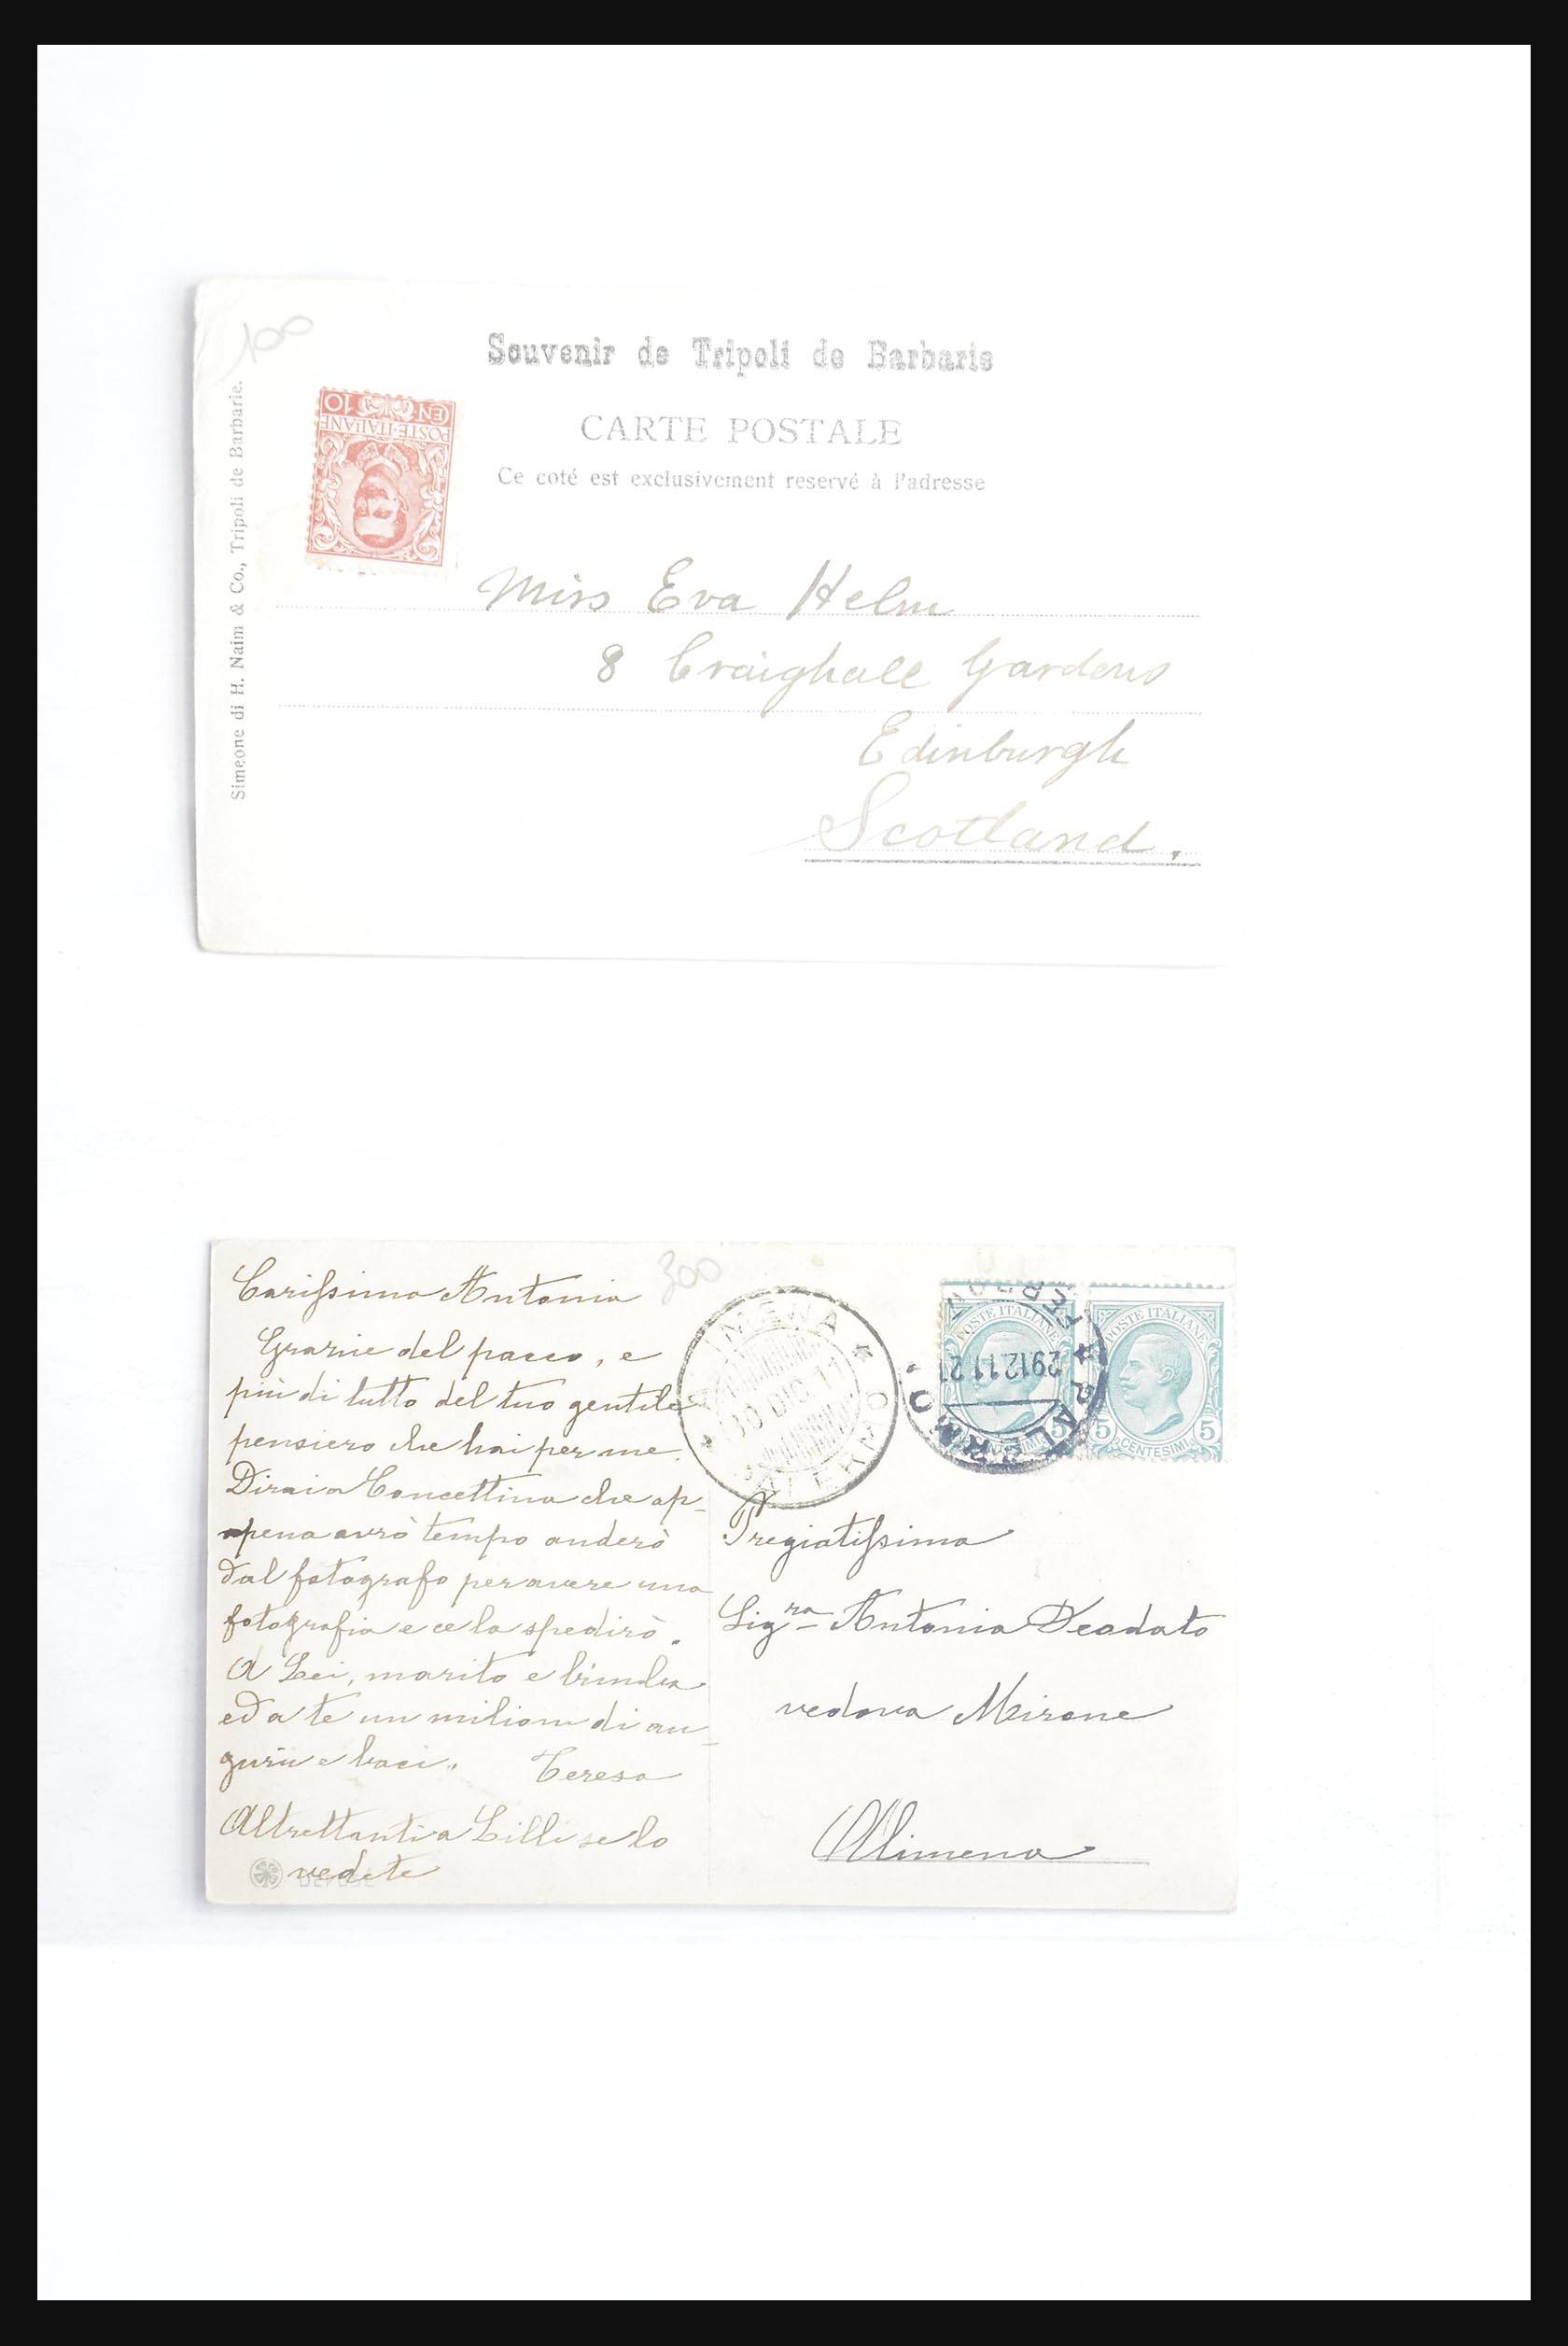 100
Souvenir de Tripoli de Barbarie
CARTE POSTALE
Ce coté est exclusivement reservé à l'adresse
Simeone di H. Naim & Co., Tripoli de Barbarie.
POSTE·ITALIANE
CEN 10
Miss Eva Helm
8 Craighall Gardens
Edinburgh
Scotland.
300
Carissima Antonia
Grazie del pacco, e
più di tutto del tuo gentile
pensiero che hai per me.
Dirai a Concettina che ap-
pena avrò tempo anderò
dal fotografo per avere una
fotografia e ce la spedirò.
A Lei, marito e bimba
ed a te un milione di au-
guri e baci. Teresa
Altrettanti a Lilli se lo
vedete
ALIMENA
30 DIC 11
PALERMO
POSTE ITALIANE
POSTE ITALIANE
29 12 11 21
PALERMO
FERROVIA
5 CENTESIMI 5
5 CENTESIMI 5
Pregiatissima
Sigra Antonia Deodato
vedova Mirone
Alimena